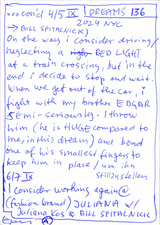 no con'd 4/5 IX DREAMS 136
2024 NYC
→BILL SPITALNICK)
On the way i consider driving/
neglecting a RED LIGHT
at a train crossing, but in the
end i decide to stop and wait.
When we get out of the car, i
fight with my brother EDGAR
SEMI-seriously. I throw
him (he is HUGE compared to
me, in this dream) and bend
one of his smallest fingers to
keep him in place / um ihn
6/7 IX stillzustellen
I consider working again @
(fashion brand) JULIANA w/
Juliana Kos & BILL SPITALNICK